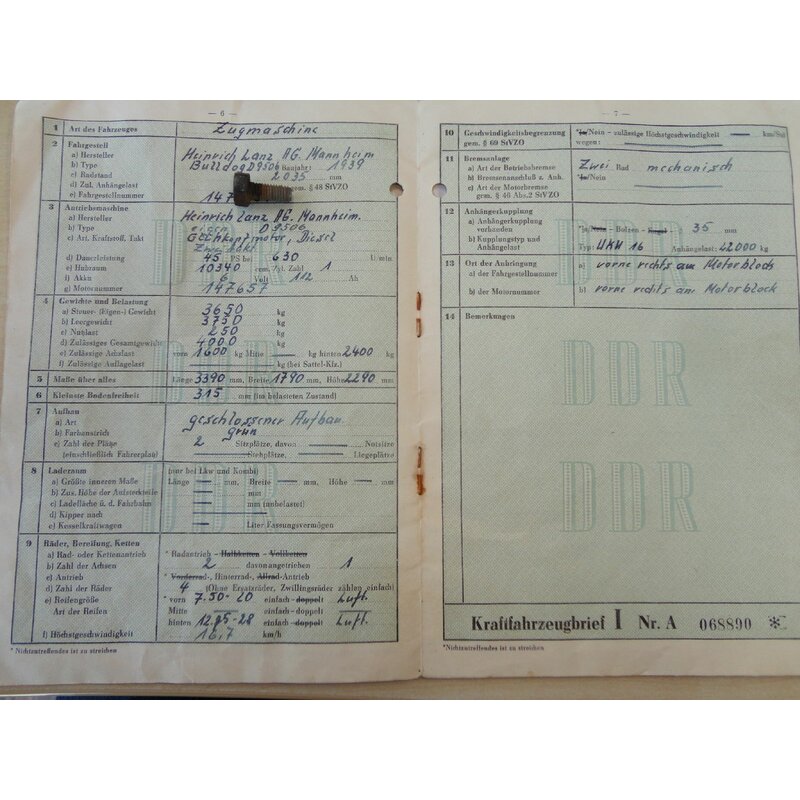 — 6 —
1 Art des Fahrzeuges Zugmaschine
2 Fahrgestell
a) Hersteller Heinrich Lanz AG. Mannheim
b) Type Bulldog D9506 Baujahr: 1939
c) Radstand 2035 mm
d) Zul. Anhängelast gem. § 48 StVZO
e) Fahrgestellnummer 147
3 Antriebsmaschine
a) Hersteller Heinrich Lanz AG. Mannheim.
b) Type D 9506
c) Art, Kraftstoff, Takt Glühkopfmotor, Diesel
Zweitakt
d) Dauerleistung 45 PS bei 630 U/min
e) Hubraum 10340 ccm, Zyl. Zahl 1
f) Akku 6 Volt 112 Ah
g) Motornummer 147657
4 Gewichte und Belastung
a) Steuer- (Eigen-) Gewicht 3650 kg
b) Leergewicht 3750 kg
c) Nutzlast 250 kg
d) Zulässiges Gesamtgewicht 4000 kg
e) Zulässige Achslast vorn 1600 kg Mitte — kg hinten 2400 kg
f) Zulässige Auflagelast — kg (bei Sattel-Kfz.)
5 Maße über alles Länge 3390 mm, Breite 1790 mm, Höhe 2290 mm
6 Kleinste Bodenfreiheit 315 mm (im belasteten Zustand)
7 Aufbau
a) Art geschlossener Aufbau
b) Farbanstrich grün
c) Zahl der Plätze 2 Sitzplätze, davon — Notsitze
(einschließlich Fahrerplatz) — Stehplätze, — Liegeplätze
8 Laderaum (nur bei Lkw und Kombi)
a) Größte innere Maße Länge — mm, Breite — mm, Höhe — mm
b) Zus. Höhe der Aufsteckteile — mm
c) Ladefläche ü. d. Fahrbahn — mm (unbelastet)
d) Kipper nach —
e) Kesselkraftwagen — Liter Fassungsvermögen
9 Räder, Bereifung, Ketten
a) Rad- oder Kettenantrieb * Radantrieb - Halbketten - Vollketten
b) Zahl der Achsen 2 davon angetrieben 1
c) Antrieb * Vorderrad-, Hinterrad-, Allrad-Antrieb
d) Zahl der Räder 4 (Ohne Ersatzräder, Zwillingsräder zählen einfach)
e) Reifengröße * vorn 7.50-20 einfach - doppelt Luft.
Art der Reifen Mitte — einfach - doppelt —
hinten 12.75-28 einfach - doppelt Luft.
f) Höchstgeschwindigkeit 16,7 km/h
* Nichtzutreffendes ist zu streichen
— 7 —
10 Geschwindigkeitsbegrenzung *Ja/Nein - zulässige Höchstgeschwindigkeit — km/Std
gem. § 69 StVZO wegen: —
11 Bremsanlage
a) Art der Betriebsbremse Zwei Rad mechanisch
b) Bremsenanschluß z. Anh. *Ja/Nein
c) Art der Motorbremse —
gem. § 40 Abs. 2 StVZO
12 Anhängerkupplung
a) Anhängerkupplung vorhanden *Ja/Nein - Bolzen - Kugel - 35 mm
b) Kupplungstyp und Anhängelast Typ: UKH 16 Anhängelast: 42000 kg
13 Ort der Anbringung
a) der Fahrgestellnummer a) vorne rechts am Motorblock
b) der Motornummer b) vorne rechts am Motorblock
14 Bemerkungen
DDR
DDR
DDR
Kraftfahrzeugbrief I Nr. A 068890
* Nichtzutreffendes ist zu streichen